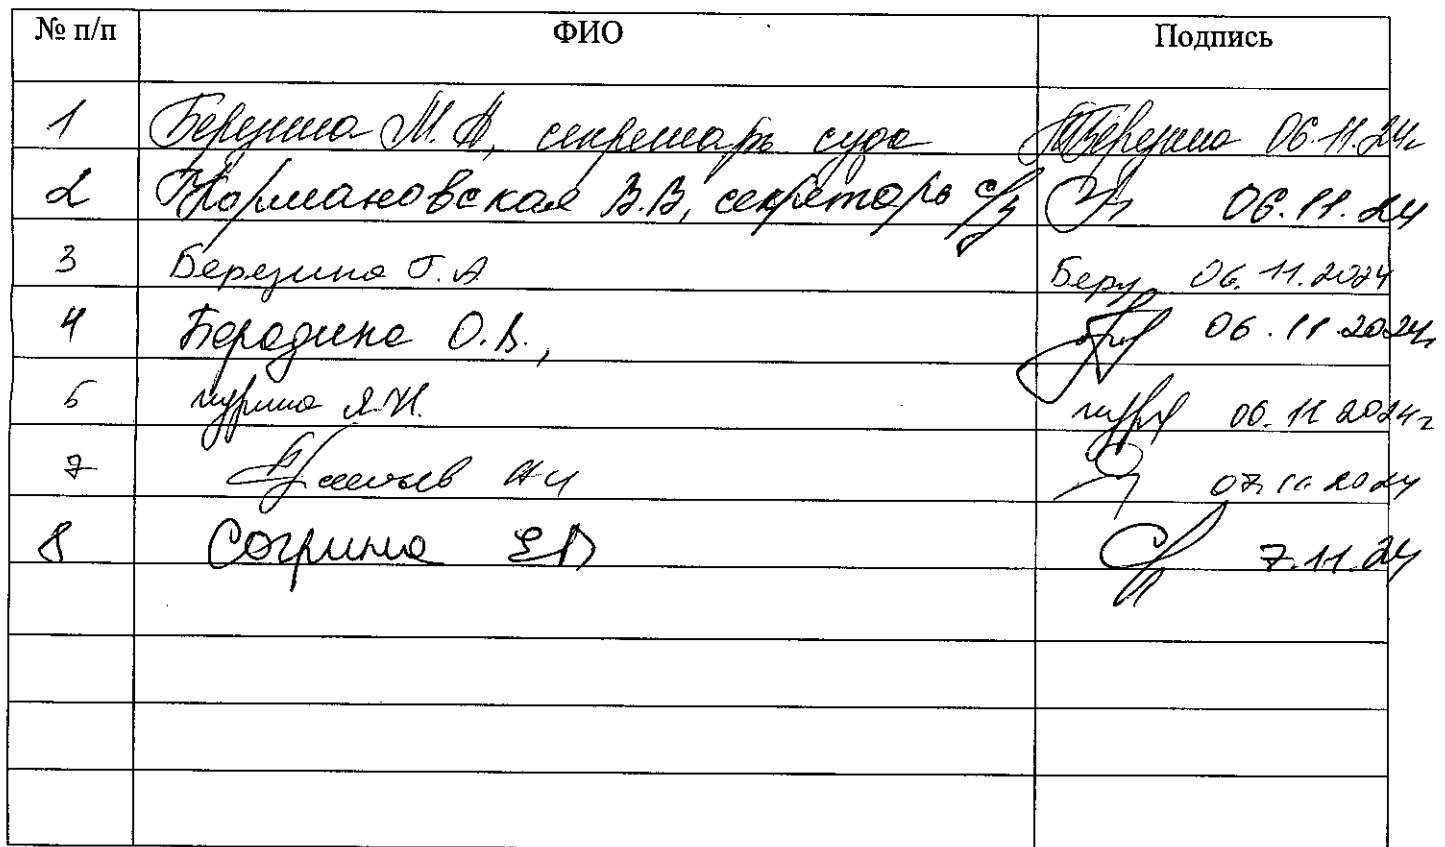 № п/п ФИО Подпись
1 Березина М. А, секретарь суда МБерезина 06.11.24г
2 Нормановская В.В, секретарь с/з 06.11.24
3 Березина Т. А Берз 06.11.2024
4 Бородина О.В., 06.11.2024г
5 Шурина Я.Н. 06.11.2024г
7 07.11.2024
8 Согрина ЕВ 7.11.24